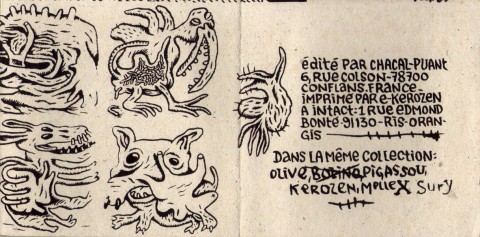 édité PAR CHACAL-PUANT
6, RUE COLSON-78700
CONFLANS. FRANCE-
IMPRIMÉ PAR E-KEROZEN
A INTACT: 1 RUE EDMOND
BONTÉ-91130-RIS-ORAN-
GIS
DANS LA MÊME COLLECTION:
OLIVE, BOBING, PIGASSOU,
KEROZEN, MOLLEX, SURY